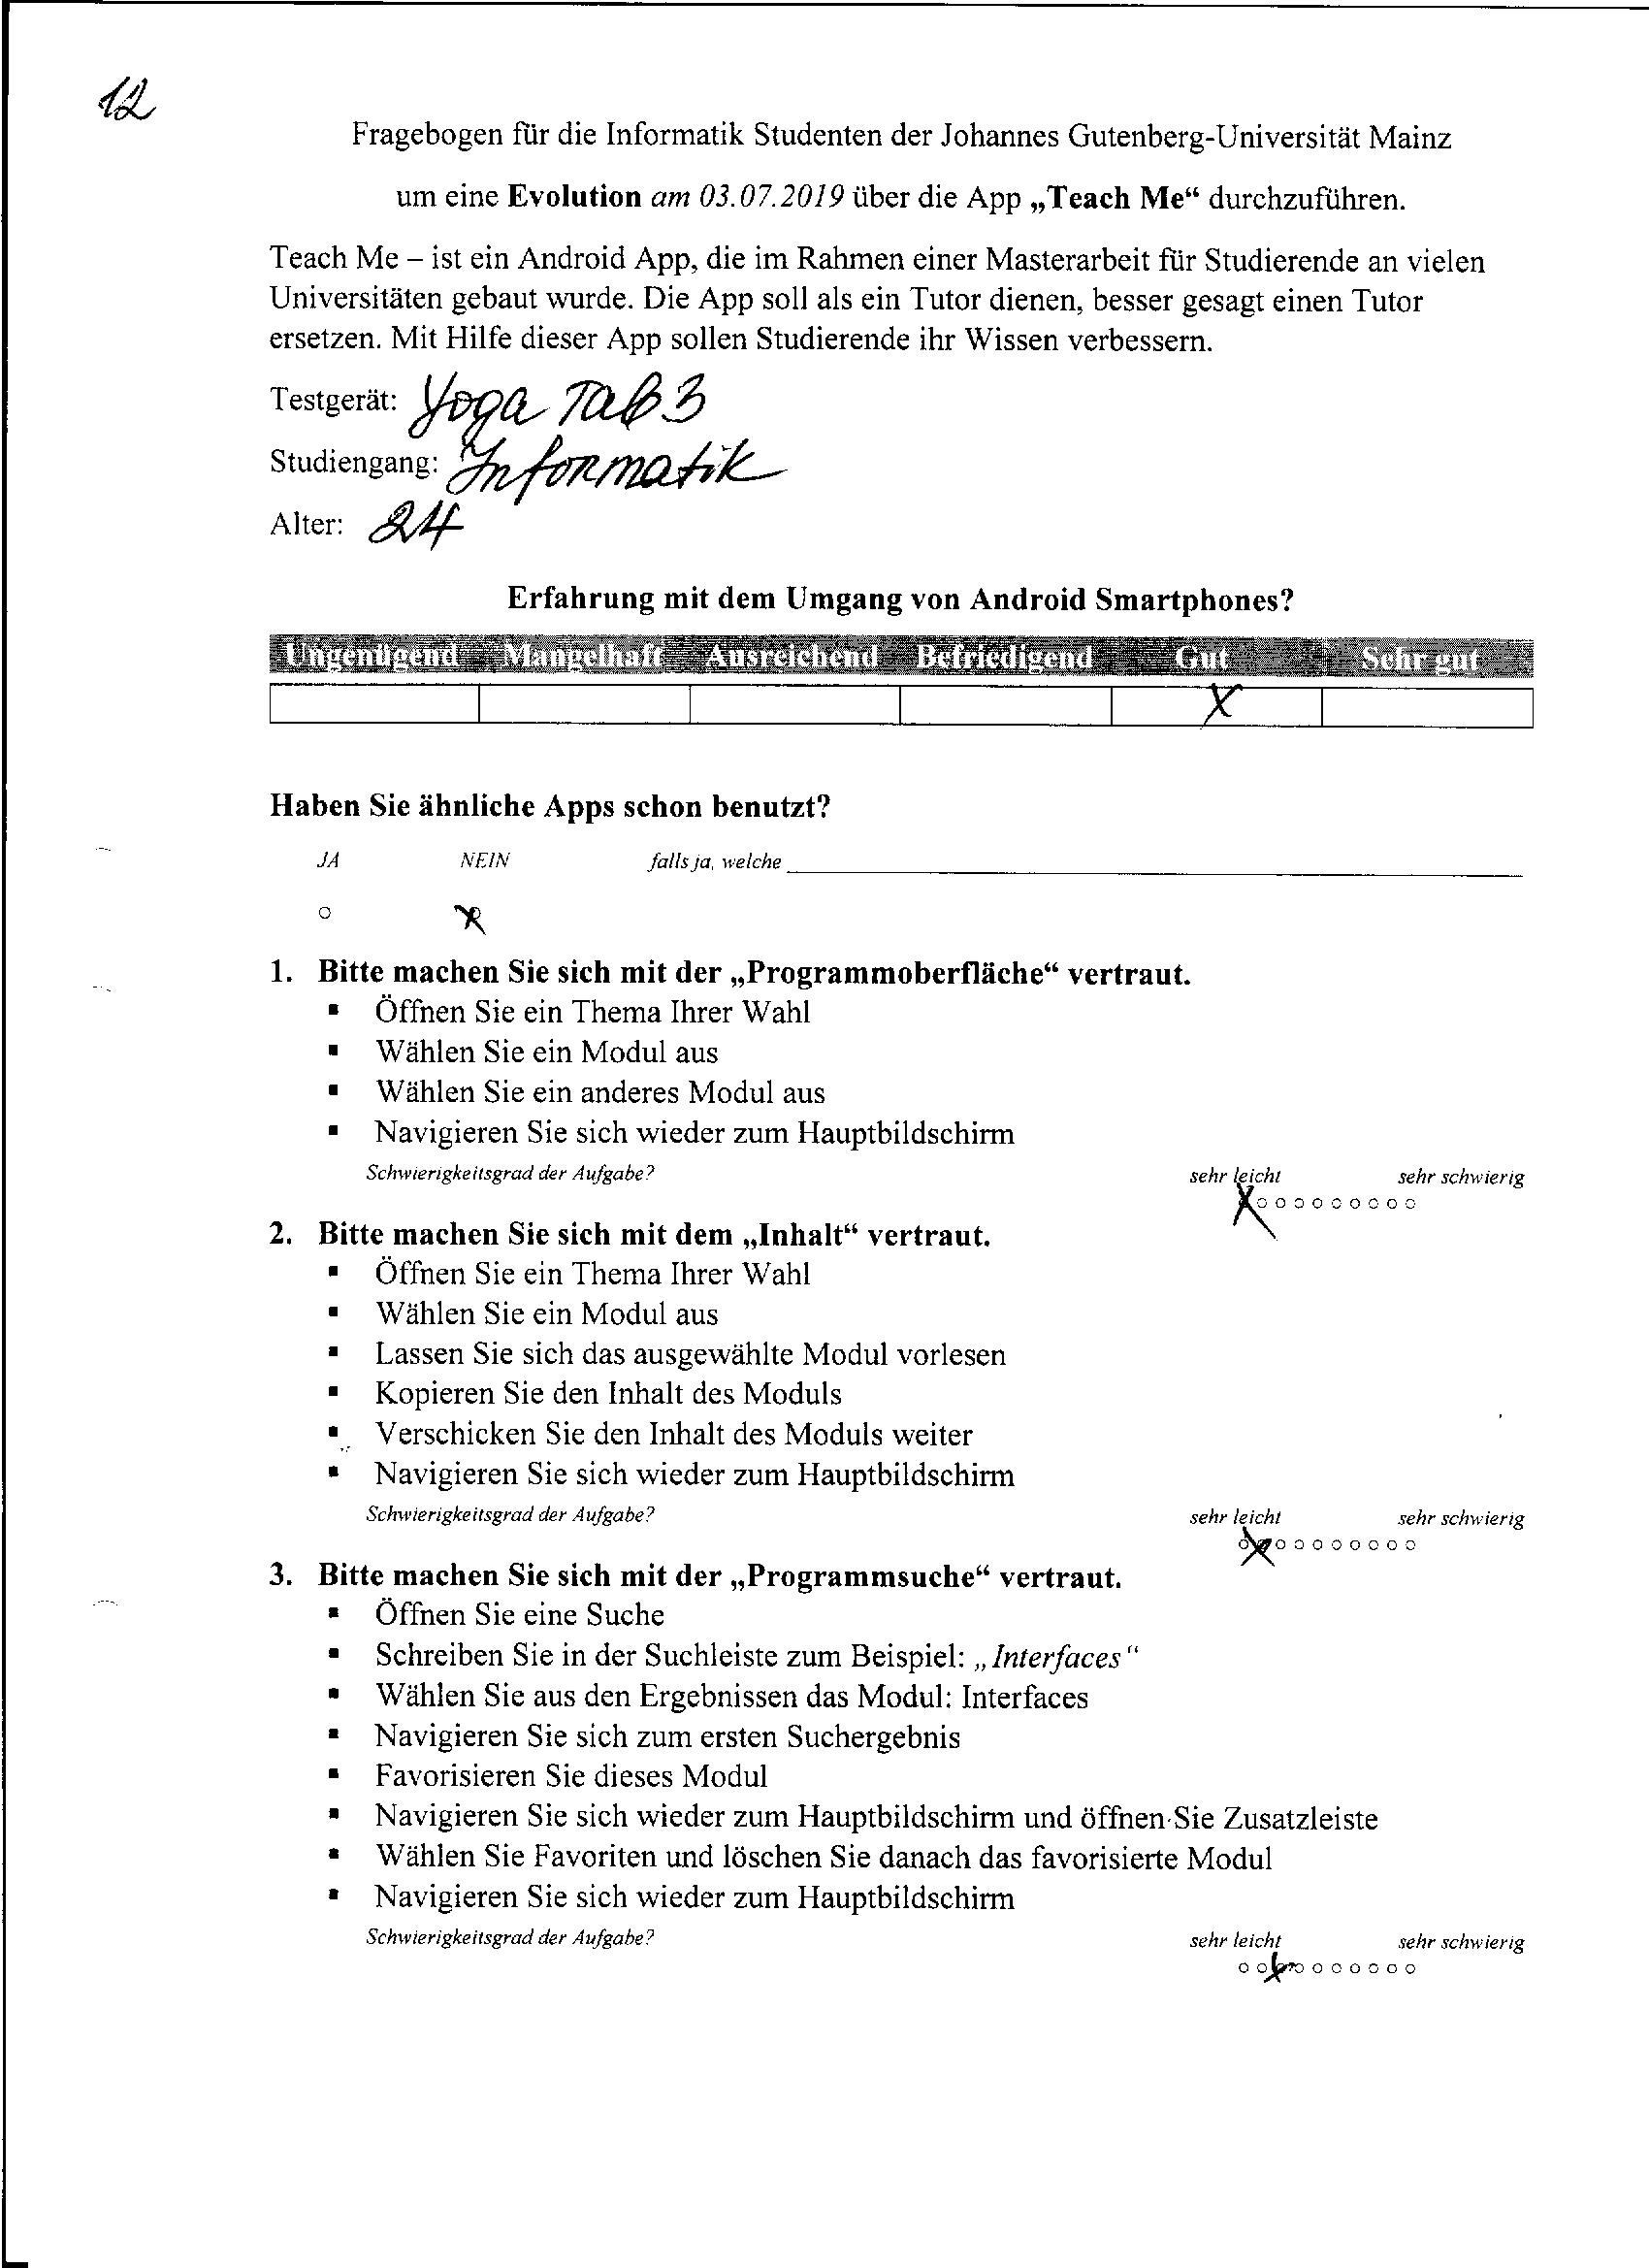 12
Fragebogen für die Informatik Studenten der Johannes Gutenberg-Universität Mainz
um eine Evolution am 03.07.2019 über die App „Teach Me“ durchzuführen.
Teach Me – ist ein Android App, die im Rahmen einer Masterarbeit für Studierende an vielen
Universitäten gebaut wurde. Die App soll als ein Tutor dienen, besser gesagt einen Tutor
ersetzen. Mit Hilfe dieser App sollen Studierende ihr Wissen verbessern.
Testgerät: Yoga Tab 3
Studiengang: Informatik
Alter: 24
Erfahrung mit dem Umgang von Android Smartphones?
Ungenügend Mangelhaft Ausreichend Befriedigend Gut Sehr gut
X
Haben Sie ähnliche Apps schon benutzt?
JA NEIN falls ja, welche
X
1. Bitte machen Sie sich mit der „Programmoberfläche“ vertraut.
▪ Öffnen Sie ein Thema Ihrer Wahl
▪ Wählen Sie ein Modul aus
▪ Wählen Sie ein anderes Modul aus
▪ Navigieren Sie sich wieder zum Hauptbildschirm
Schwierigkeitsgrad der Aufgabe? sehr leicht sehr schwierig
X
2. Bitte machen Sie sich mit dem „Inhalt“ vertraut.
▪ Öffnen Sie ein Thema Ihrer Wahl
▪ Wählen Sie ein Modul aus
▪ Lassen Sie sich das ausgewählte Modul vorlesen
▪ Kopieren Sie den Inhalt des Moduls
▪ Verschicken Sie den Inhalt des Moduls weiter
▪ Navigieren Sie sich wieder zum Hauptbildschirm
Schwierigkeitsgrad der Aufgabe? sehr leicht sehr schwierig
X
3. Bitte machen Sie sich mit der „Programmsuche“ vertraut.
▪ Öffnen Sie eine Suche
▪ Schreiben Sie in der Suchleiste zum Beispiel: „Interfaces“
▪ Wählen Sie aus den Ergebnissen das Modul: Interfaces
▪ Navigieren Sie sich zum ersten Suchergebnis
▪ Favorisieren Sie dieses Modul
▪ Navigieren Sie sich wieder zum Hauptbildschirm und öffnen Sie Zusatzleiste
▪ Wählen Sie Favoriten und löschen Sie danach das favorisierte Modul
▪ Navigieren Sie sich wieder zum Hauptbildschirm
Schwierigkeitsgrad der Aufgabe? sehr leicht sehr schwierig
X